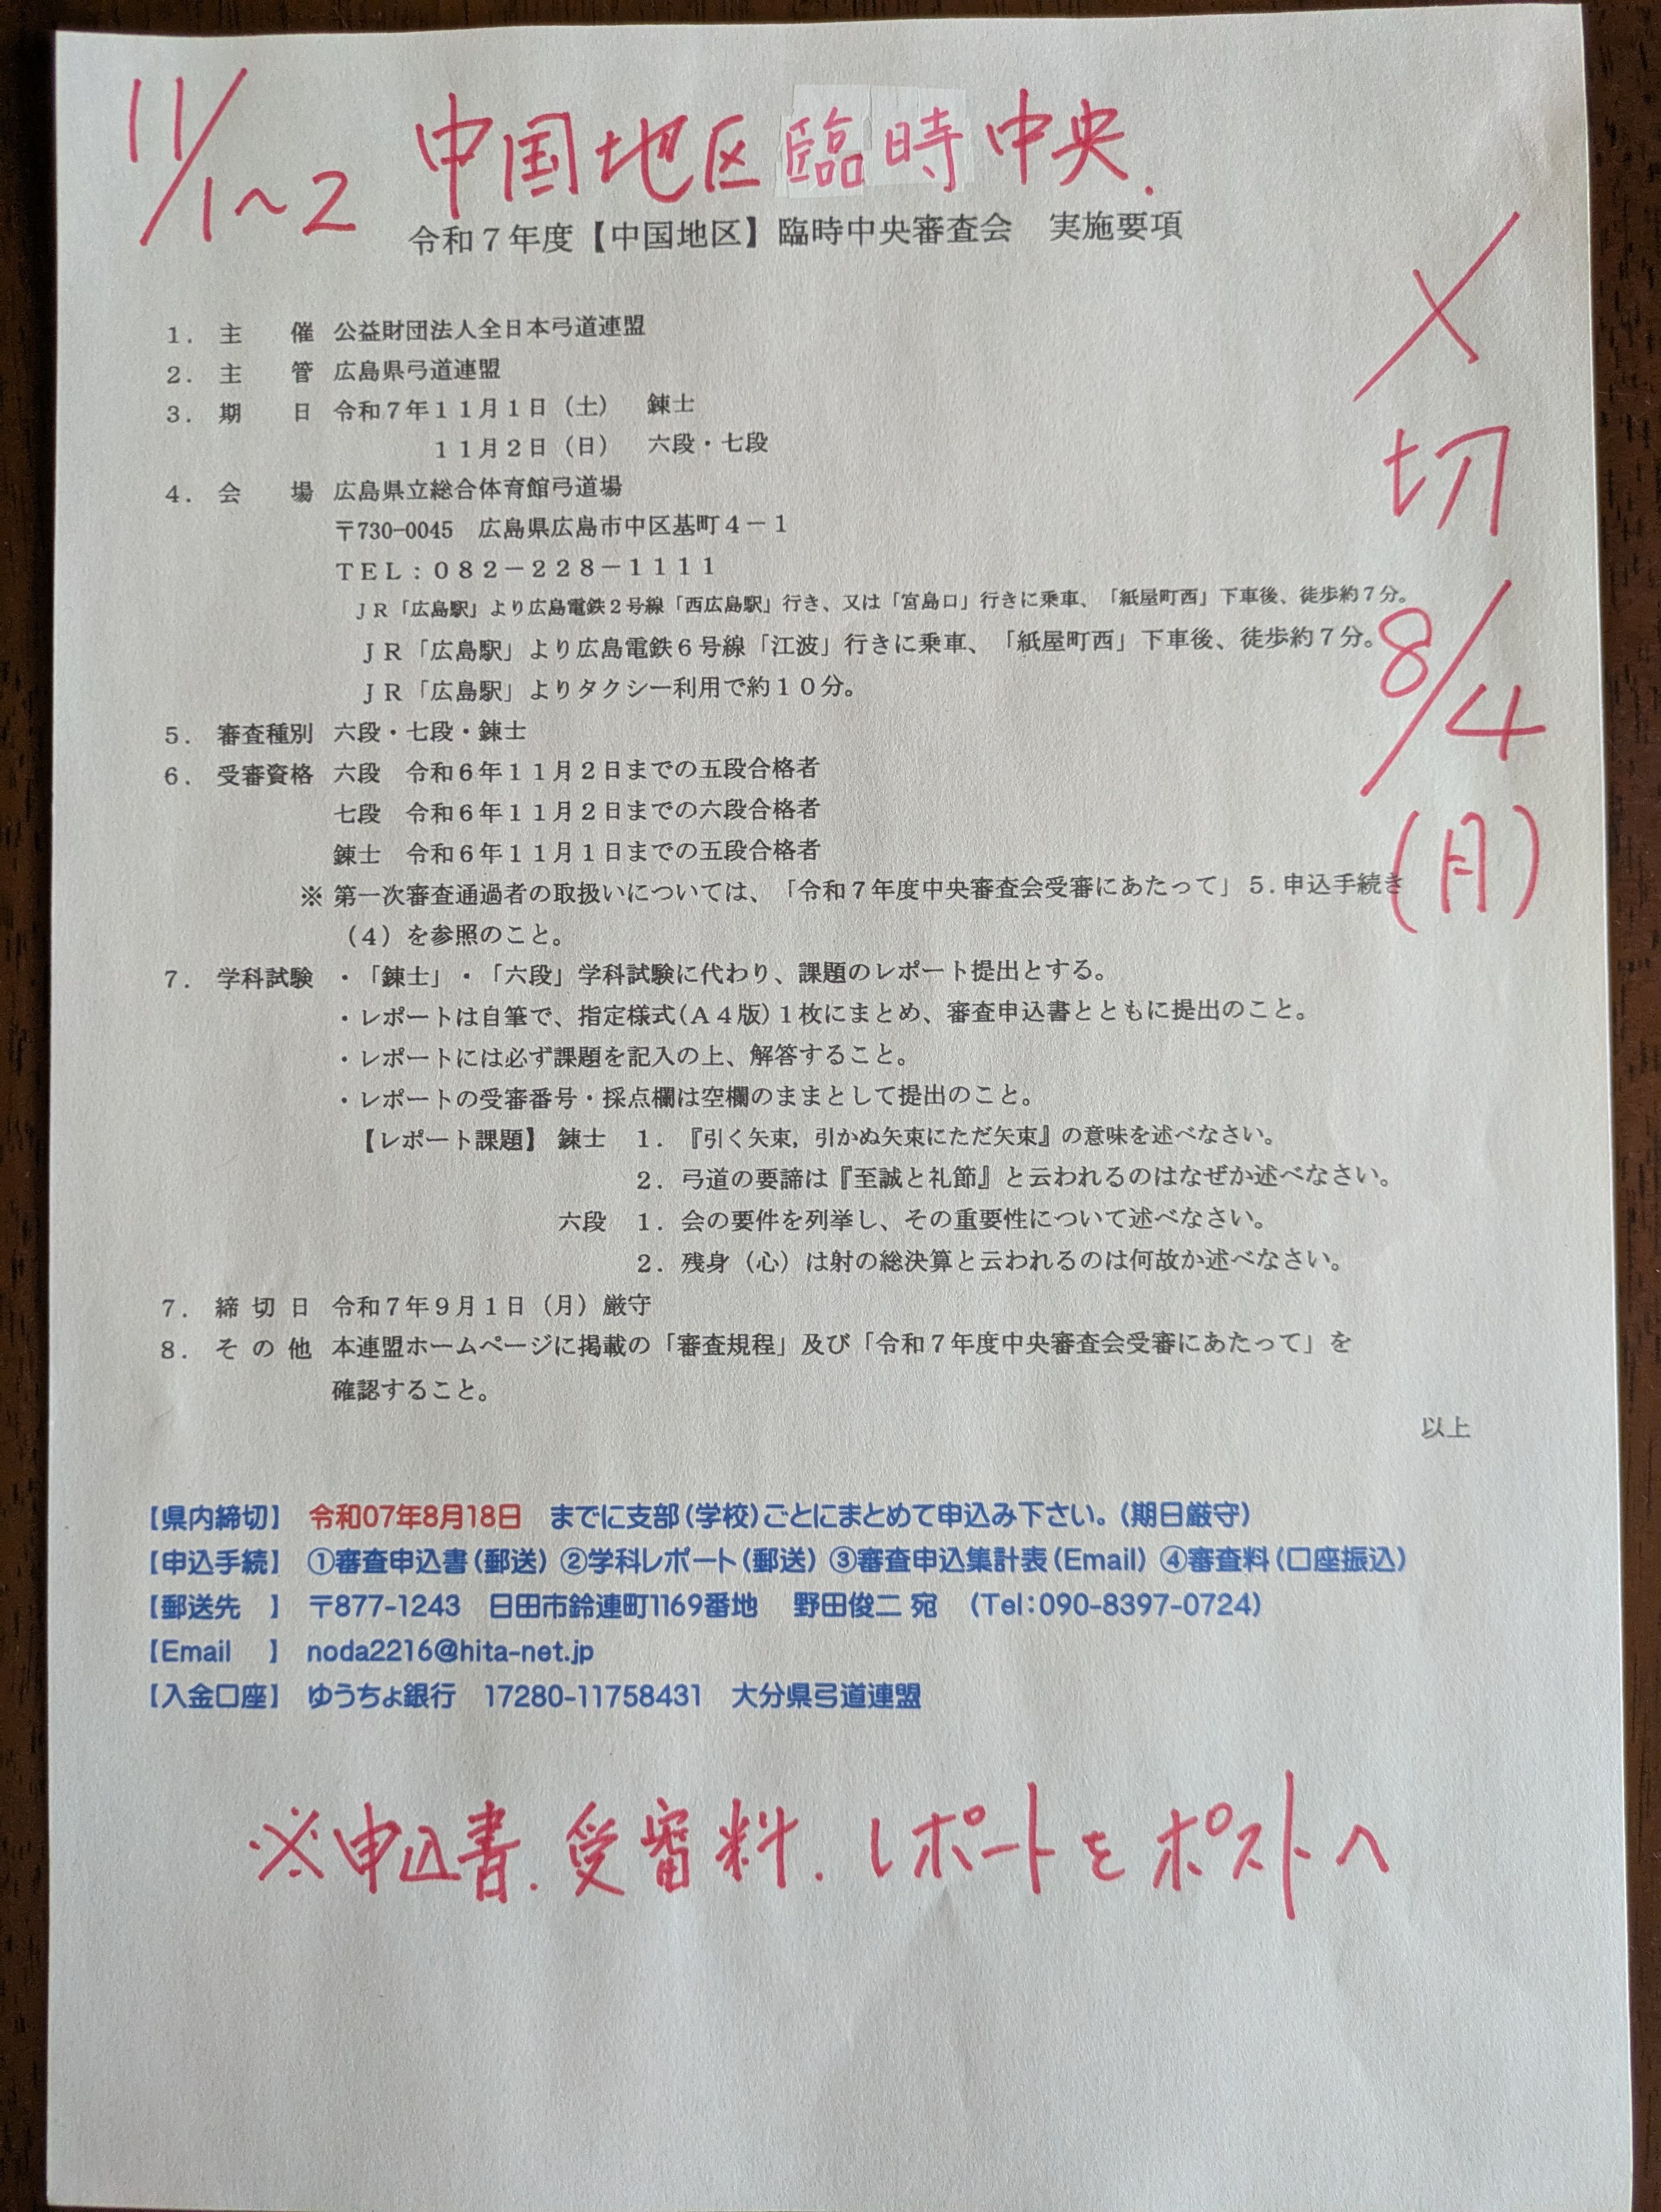 11/1~2 中国地区臨時中央.
令和７年度【中国地区】臨時中央審査会　実施要項
〆切 8/4 (月)
１．主　　催　公益財団法人全日本弓道連盟
２．主　　管　広島県弓道連盟
３．期　　日　令和７年１１月１日（土）　錬士
１１月２日（日）　六段・七段
４．会　　場　広島県立総合体育館弓道場
〒730-0045　広島県広島市中区基町４－１
ＴＥＬ：０８２－２２８－１１１１
ＪＲ「広島駅」より広島電鉄２号線「西広島駅」行き、又は「宮島口」行きに乗車、「紙屋町西」下車後、徒歩約７分。
ＪＲ「広島駅」より広島電鉄６号線「江波」行きに乗車、「紙屋町西」下車後、徒歩約７分。
ＪＲ「広島駅」よりタクシー利用で約１０分。
５．審査種別　六段・七段・錬士
６．受審資格　六段　令和６年１１月２日までの五段合格者
七段　令和６年１１月２日までの六段合格者
錬士　令和６年１１月１日までの五段合格者
※ 第一次審査通過者の取扱いについては、「令和７年度中央審査会受審にあたって」５．申込手続き
（４）を参照のこと。
７．学科試験　・「錬士」・「六段」学科試験に代わり、課題のレポート提出とする。
・レポートは自筆で、指定様式(Ａ４版)１枚にまとめ、審査申込書とともに提出のこと。
・レポートには必ず課題を記入の上、解答すること。
・レポートの受審番号・採点欄は空欄のままとして提出のこと。
【レポート課題】 錬士　１．『引く矢束，引かぬ矢束にただ矢束』の意味を述べなさい。
２．弓道の要諦は『至誠と礼節』と云われるのはなぜか述べなさい。
六段　１．会の要件を列挙し、その重要性について述べなさい。
２．残身（心）は射の総決算と云われるのは何故か述べなさい。
７．締 切 日　令和７年９月１日（月）厳守
８．そ の 他　本連盟ホームページに掲載の「審査規程」及び「令和７年度中央審査会受審にあたって」を
確認すること。
以上
【県内締切】　令和07年8月18日　までに支部（学校）ごとにまとめて申込み下さい。（期日厳守）
【申込手続】　①審査申込書（郵送） ②学科レポート（郵送） ③審査申込集計表（Email） ④審査料（口座振込）
【郵送先　】　〒877-1243　日田市鈴連町1169番地　野田俊二 宛　（Tel：090-8397-0724）
【Email　】　noda2216@hita-net.jp
【入金口座】　ゆうちょ銀行　17280-11758431　大分県弓道連盟
※申込書.受審料.レポートをポストへ